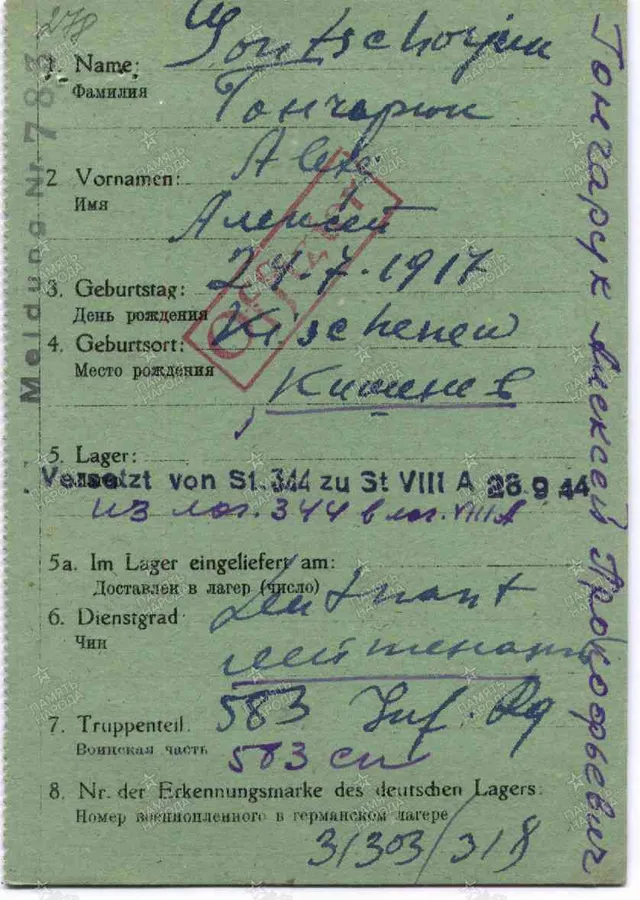 278
1. Name: Gontscharjuk
Фамилия Гончарюк
2 Vornamen: Alexej
Имя Алексей
3. Geburtstag: 24.7.1917
День рождения
4. Geburtsort: Kischenew
Место рождения Кишенев
5. Lager:
Versetzt von St. 344 zu St VIII A 26.9.44
из лаг. 344 в лаг. VIII A
5a. Im Lager eingeliefert am:
Доставлен в лагер (число)
6. Dienstgrad Leutnant
Чин лейтенант
7. Truppenteil. 583 Inf. Rg
Воинская часть 583 сп
8. Nr. der Erkennungsmarke des deutschen Lagers:
Номер военнопленного в германском лагере
31303/318
Meldung Nr. 783
Offizier
Гончарук Алексей Прокофьевич
ПАМЯТЬ НАРОДА